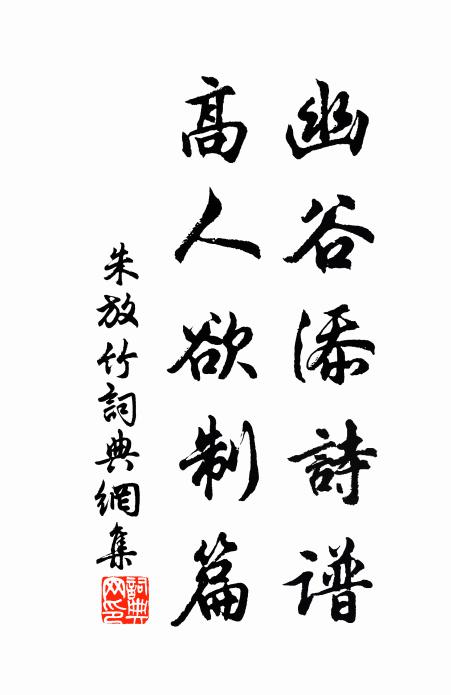 幽谷添詩谱
高人欲制篇
朱放竹詞典網集
詞典网印